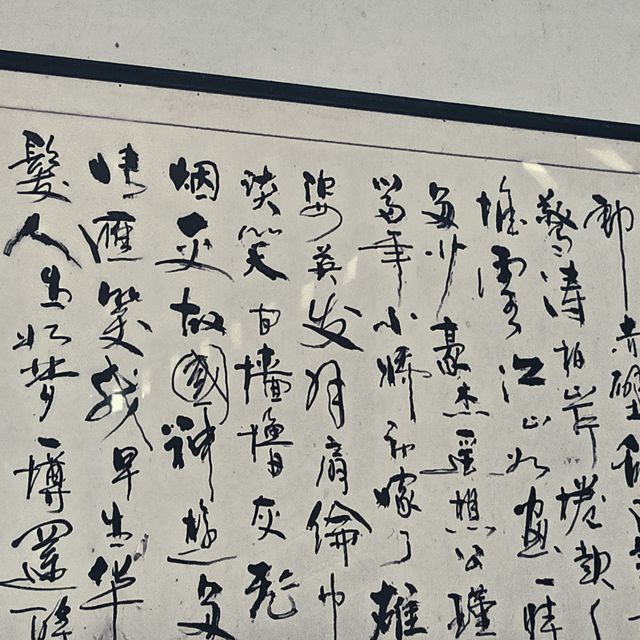 郎赤壁
驚涛拍岸捲起
堆雪江山如画一時
多少豪杰遥想公瑾
當年小初嫁了雄
姿英发羽扇綸巾
談笑间檣櫓灰飞
烟灭故國神遊多
情應笑我早生华
髮人生如梦一樽還酹